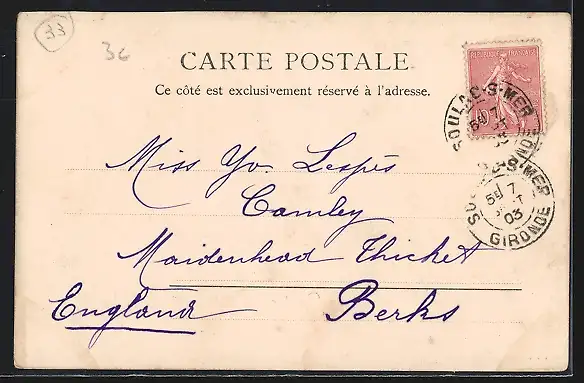 33
3c
CARTE POSTALE
Ce côté est exclusivement réservé à l'adresse.
REPUBLIQUE FRANÇAISE
10
SOULAC-S-MER
SOULAC-S-MER
5E 7
03
GIRONDE
Miss Yv. Lespès
Camley
Maidenhead Thicket
England Berks